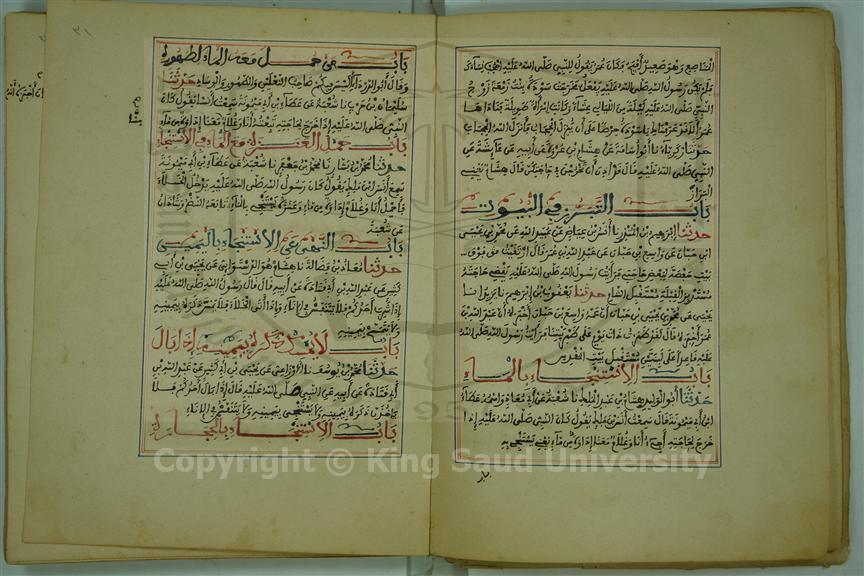 المناصع وهو صعيد أفيح وكان عمر يقول للنبي صلى الله عليه احجب نساءك
فلم يكن رسول الله صلى الله عليه يفعل فخرجت سودة بنت زمعة زوج
النبي صلى الله عليه ليلة من الليالي عشاء وكانت امرأة طويلة فناداها
عمر ألا قد عرفناك يا سودة حرصا على أن ينزل الحجاب فأنزل الله الحجاب
حدثنا زكرياء نا أبو أسامة عن هشام بن عروة عن أبيه عن عائشة عن
النبي صلى الله عليه قال قد أذن أن تخرجن في حاجتكن قال هشام يعني
البراز
باب التبرز في البيوت
حدثنا إبرهيم بن المنذر نا أنس بن عياض عن عبيد الله عن محمد بن يحيى
ابن حبان عن واسع بن حبان عن عبد الله بن عمر قال ارتقيت فوق
بيت حفصة لبعض حاجتي فرأيت رسول الله صلى الله عليه يقضي حاجته
مستدبر القبلة مستقبل الشام حدثنا يعقوب بن إبرهيم نا يزيد انا
يحيى عن محمد بن يحيى بن حبان أن عمه واسع بن حبان أخبره أن عبد الله بن
عمر أخبره قال لقد ظهرت ذات يوم على ظهر بيتنا فرأيت رسول الله صلى الله
عليه قاعدا على لبنتين مستقبل بيت المقدس
باب الاستنجاء بالماء
حدثنا أبو الوليد هشام بن عبد الملك نا شعبة عن أبي معاذ واسمه عطاء
ابن أبي ميمونة قال سمعت أنس بن ملك يقول كان النبي صلى الله عليه إذا
خرج لحاجته أجيء أنا وغلام معنا إداوة من ماء يعني يستنجي به
باب
باب من حمل معه الماء لطهوره
وقال أبو الدرداء أليس فيكم صاحب النعلين والطهور والوساد حدثنا
سليمان بن حرب نا شعبة عن عطاء بن أبي ميمونة سمعت أنسا يقول كان
النبي صلى الله عليه إذا خرج لحاجته تبعته أنا وغلام معنا إداوة من ماء
باب حمل العنزة مع الماء في الاستنجاء
حدثنا محمد بن بشار نا محمد بن جعفر نا شعبة عن عطاء بن أبي ميمونة
سمع أنس بن ملك يقول كان رسول الله صلى الله عليه يدخل الخلاء
فأحمل أنا وغلام إداوة من ماء وعنزة يستنجي بالماء تابعه النضر وشاذان
عن شعبة
باب النهي عن الاستنجاء باليمين
حدثنا معاذ بن فضالة نا هشام هو الدستوائي عن يحيى بن أبي
كثير عن عبد الله بن أبي قتادة عن أبيه قال قال رسول الله صلى الله عليه
إذا شرب أحدكم فلا يتنفس في الإناء وإذا أتى الخلاء فلا يمس ذكره بيمينه
ولا يتمسح بيمينه
باب لا يمسك ذكره بيمينه إذا بال
حدثنا محمد بن يوسف نا الأوزاعي عن يحيى بن أبي كثير عن عبد الله بن
أبي قتادة عن أبيه عن النبي صلى الله عليه قال إذا بال أحدكم فلا
يأخذن ذكره بيمينه ولا يستنجي بيمينه ولا يتنفس في الإناء
باب الاستنجاء بالحجارة
Copyright © King Saud University